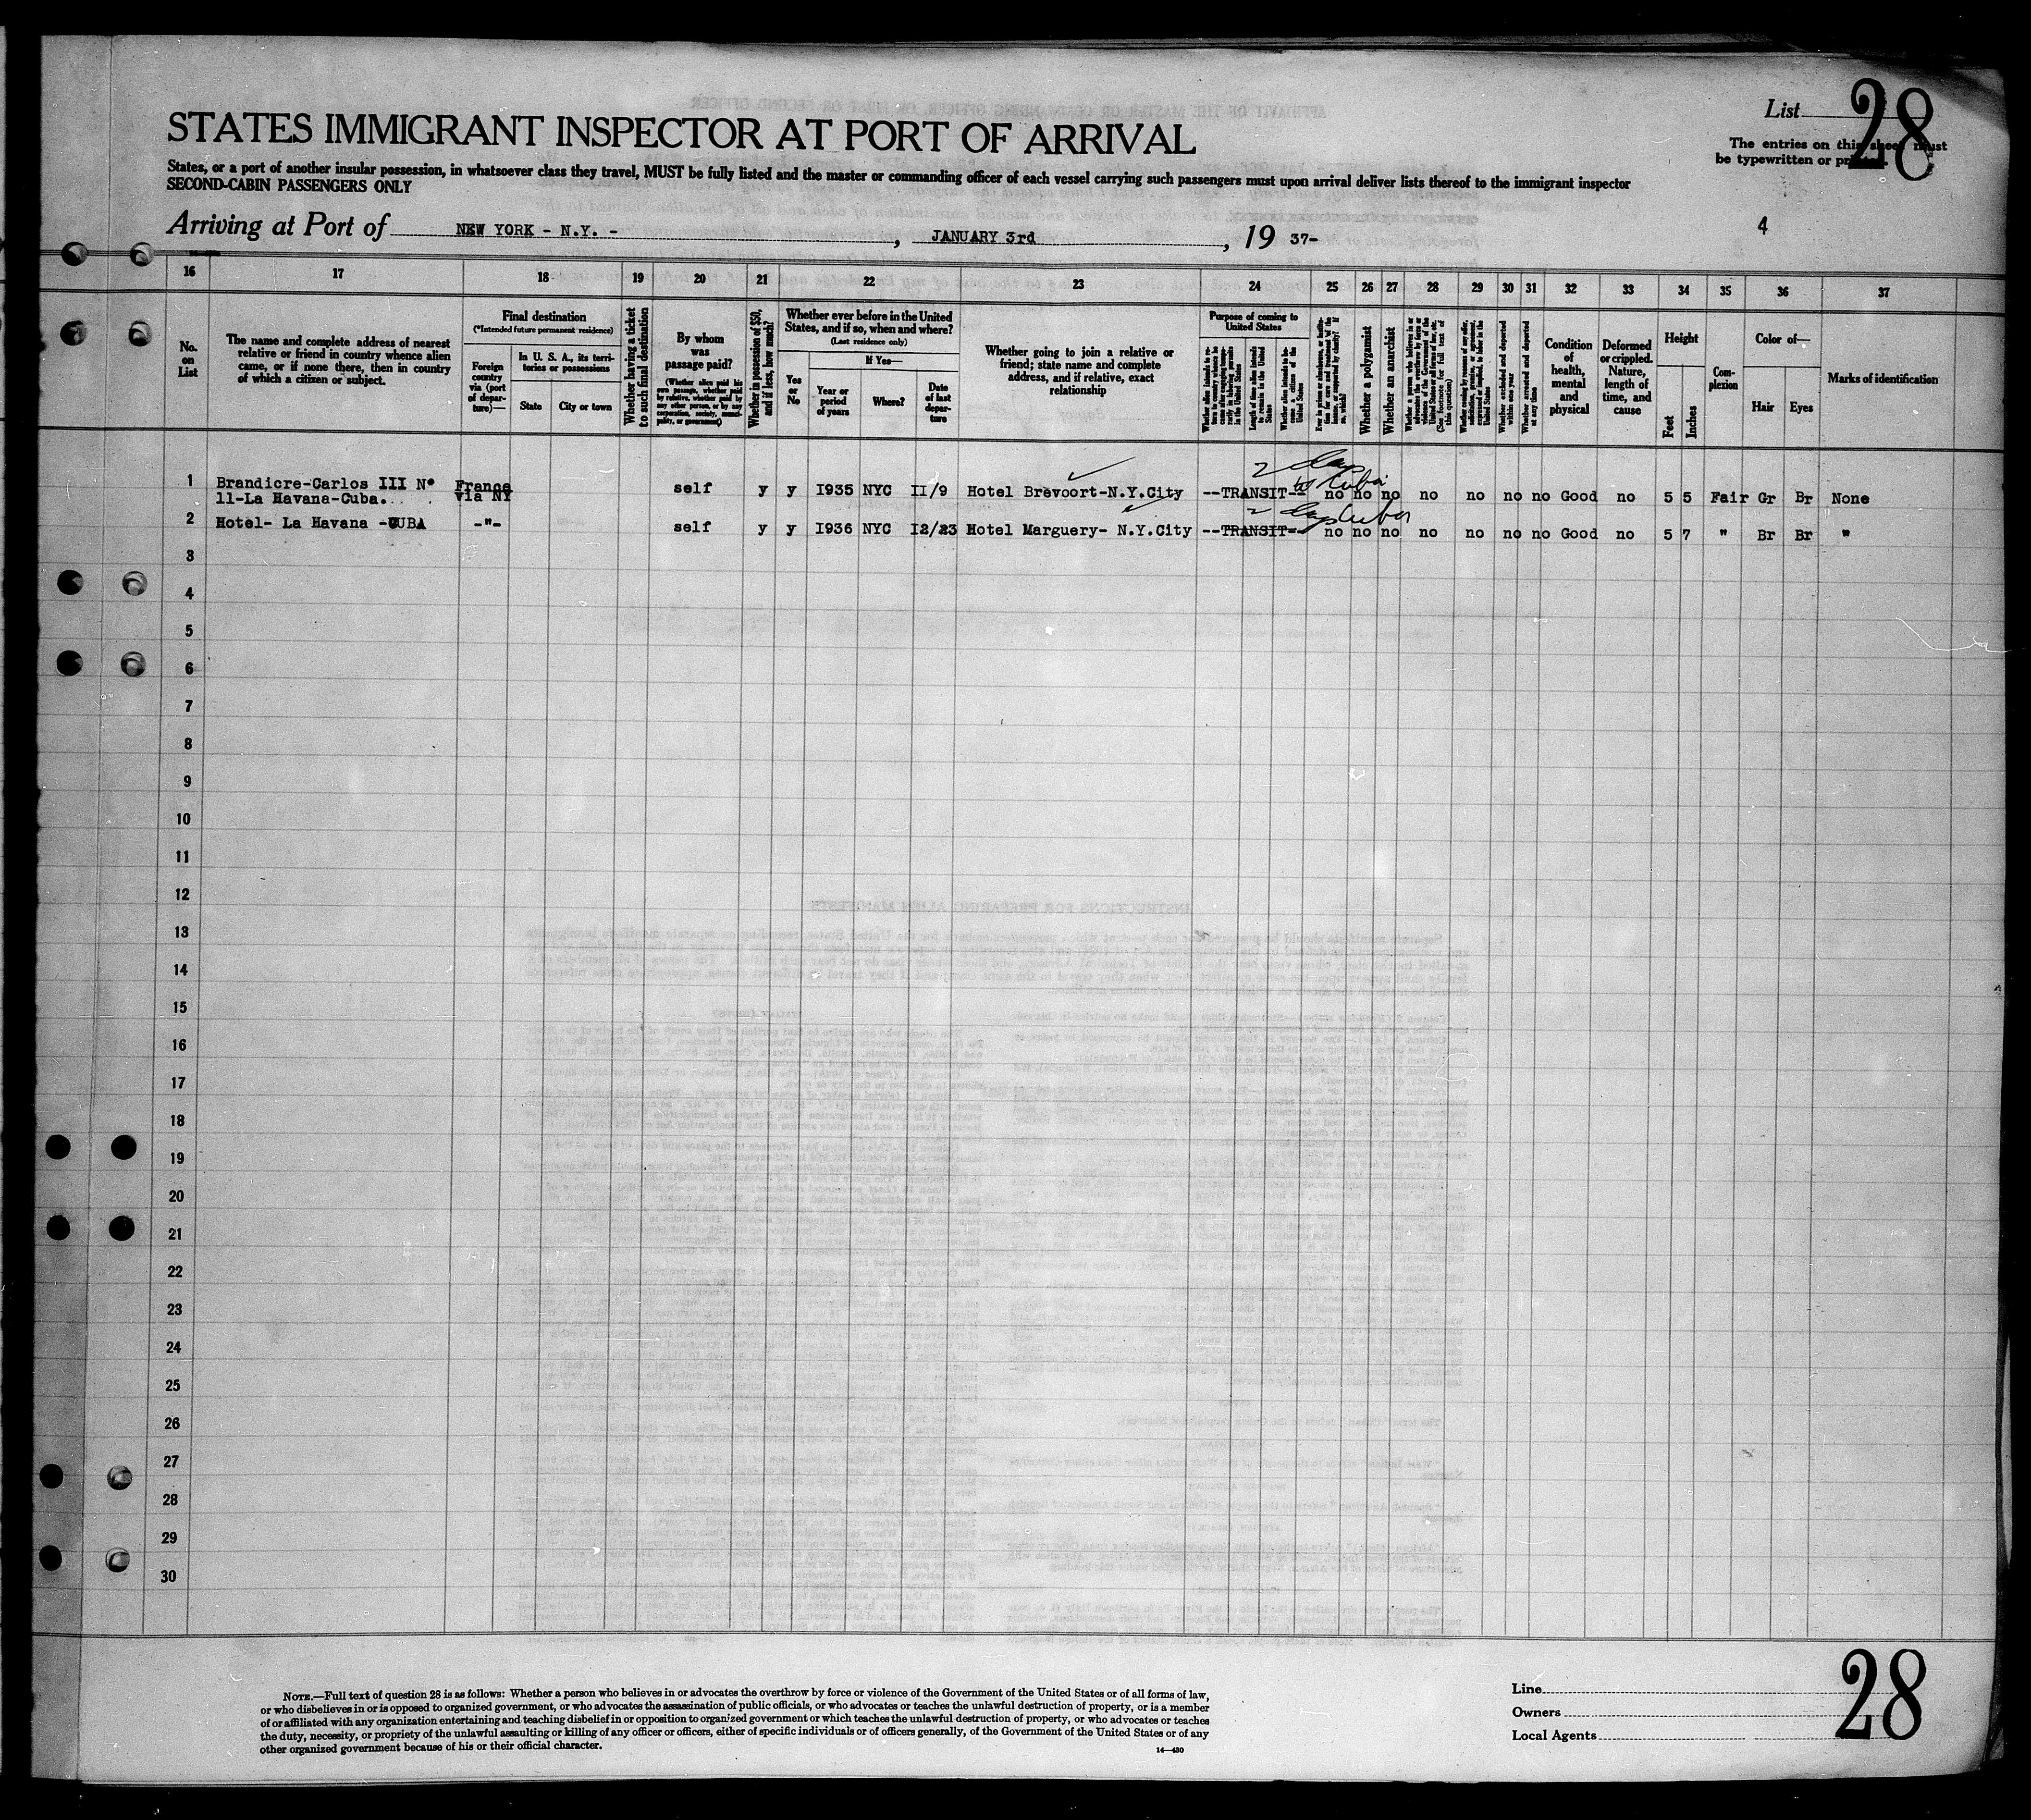 List 28
STATES IMMIGRANT INSPECTOR AT PORT OF ARRIVAL
The entries on this sheet must
be typewritten or printed.
States, or a port of another insular possession, in whatsoever class they travel, MUST be fully listed and the master or commanding officer of each vessel carrying such passengers must upon arrival deliver lists thereof to the immigrant inspector
SECOND-CABIN PASSENGERS ONLY
Arriving at Port of NEW YORK - N.Y. - , JANUARY 3rd , 19 37-
4
16 17 18 19 20 21 22 23 24 25 26 27 28 29 30 31 32 33 34 35 36 37
No.
on
List
The name and complete address of nearest
relative or friend in country whence alien
came, or if none there, then in country
of which a citizen or subject.
Final destination
(*Intended future permanent residence)
Foreign
country
via (port
of depar-
ture)—
In U. S. A., its terri-
tories or possessions
State City or town
Whether having a ticket
to such final destination
By whom
was
passage paid?
(Whether alien paid his
own passage, whether paid
by relative, whether paid by
any other person, or by any
corporation, society, munici-
pality, or government)
Whether in possession of $50,
and if less, how much?
Whether ever before in the United
States, and if so, when and where?
(Last residence only)
Yes
or
No
If Yes—
Year or
period
of years
Where?
Date
of last
depar-
ture
Whether going to join a relative or
friend; state name and complete
address, and if relative, exact
relationship
Purpose of coming to
United States
Length of time alien intends
to remain in the United
States
Whether alien intends to be-
come a citizen of the
United States
Whether a polygamist
Whether an anarchist
Whether excluded and deported
within one year
Whether arrested and deported
at any time
Condition
of
health,
mental
and
physical
Deformed
or crippled.
Nature,
length of
time, and
cause
Height
Feet
Inches
Com-
plexion
Color of—
Hair Eyes
Marks of identification
2 days
to Cuba
1 Brandicre-Carlos III N° France self y y 1935 NYC II/9 Hotel Brevoort-N.Y.City --TRANSIT-- no no no no no no no Good no 5 5 Fair Gr Br None
11-La Havana-Cuba. via NY
2 days Cuba
2 Hotel- La Havana -CUBA -"- self y y 1936 NYC I2/23 Hotel Marguery- N.Y.City --TRANSIT-- no no no no no no no Good no 5 7 " Br Br "
3
4
5
6
7
8
9
10
11
12
13
14
15
16
17
18
19
20
21
22
23
24
25
26
27
28
29
30
NOTE.—Full text of question 28 is as follows: Whether a person who believes in or advocates the overthrow by force or violence of the Government of the United States or of all forms of law,
or who disbelieves in or is opposed to organized government, or who advocates the assassination of public officials, or who advocates or teaches the unlawful destruction of property, or is a member
of or affiliated with any organization entertaining and teaching disbelief in or opposition to organized government or which teaches the unlawful destruction of property, or who advocates or teaches
the duty, necessity, or propriety of the unlawful assaulting or killing of any officer or officers, either of specific individuals or of officers generally, of the Government of the United States or of any
other organized government because of his or their official character.
14—430
Line
Owners
Local Agents
28